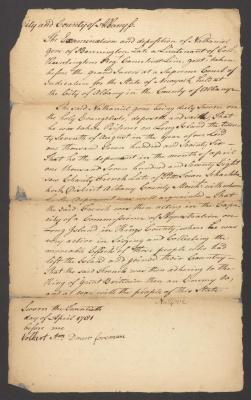 City and County of Albany ss.
The Examination and deposition of Nathaniel
gove of Bennington late a Lieutenant of Col.
Regt Continental Line. taken
before the grand Jurors at a Supreme Court of
Judicature for the State of Newyork held at
the City of Albany in the County of Albany
The said Nathaniel gove being duly Sworn on
the holy Evangelists, deposeth and saith That
he was taken Prisoner on Long Island the Twen
ty Seventh of August in the Year of our Lord
one thousand Seven hundred and Seventy Six
That he the deponent in the month of April
one thousand Seven hundred and Seventy Eight
Saw late of
District Albany County
That
the said was then acting in the Capa
city of a Commissioner of Sequestration, on
Long Island in Kings County, where he was
very active in Seizing and Collecting the
moveable Effects of those people who had
left the Island and joined their Country
that the said was then adhering to the
King of Great Brittain then an Enemy to,
and at war with the people of this State
Sworn the Twentieth
day of April 1781
before me
Volkert Douw foreman